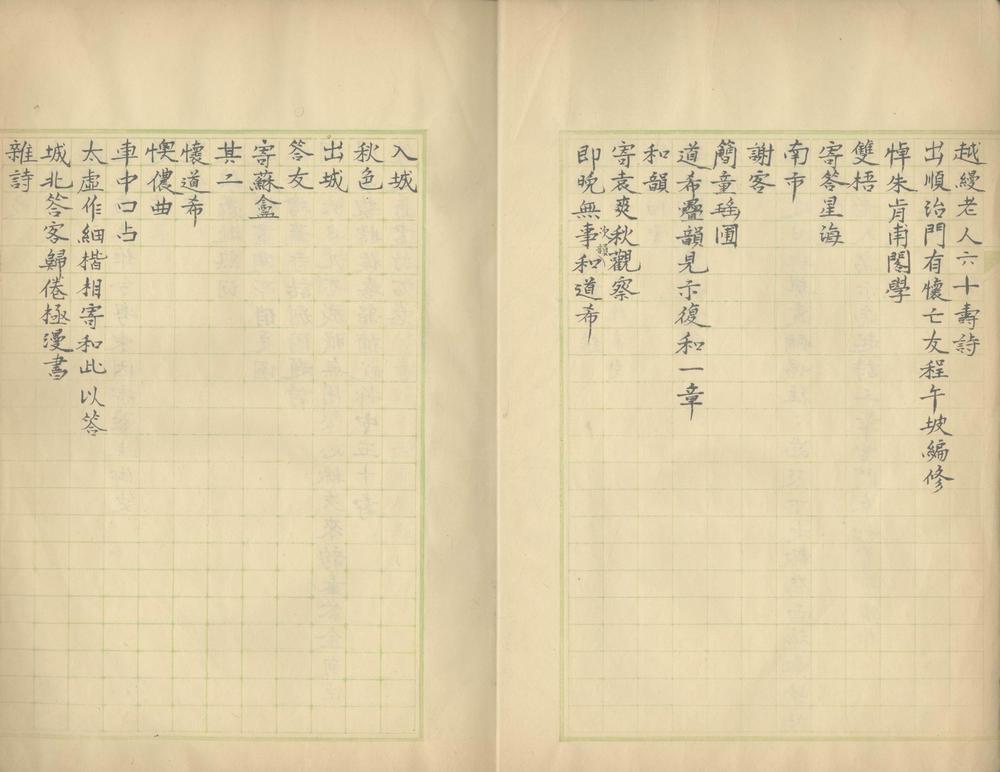 越縵老人六十壽詩
出順治門有懷亡友程午坡編修
悼朱肯甫閣學
雙梧
寄答星海
南市
謝客
簡童瑤圃
道希疊韻見示復和一章
和韻
寄袁爽秋觀察次韻
即晚無事和道希
入城
秋色
出城
答友
寄蘇盦
其二
懷道希
懊儂曲
車中口占
太虛作細楷相寄和此以答
城北答客歸倦極漫書
雜詩